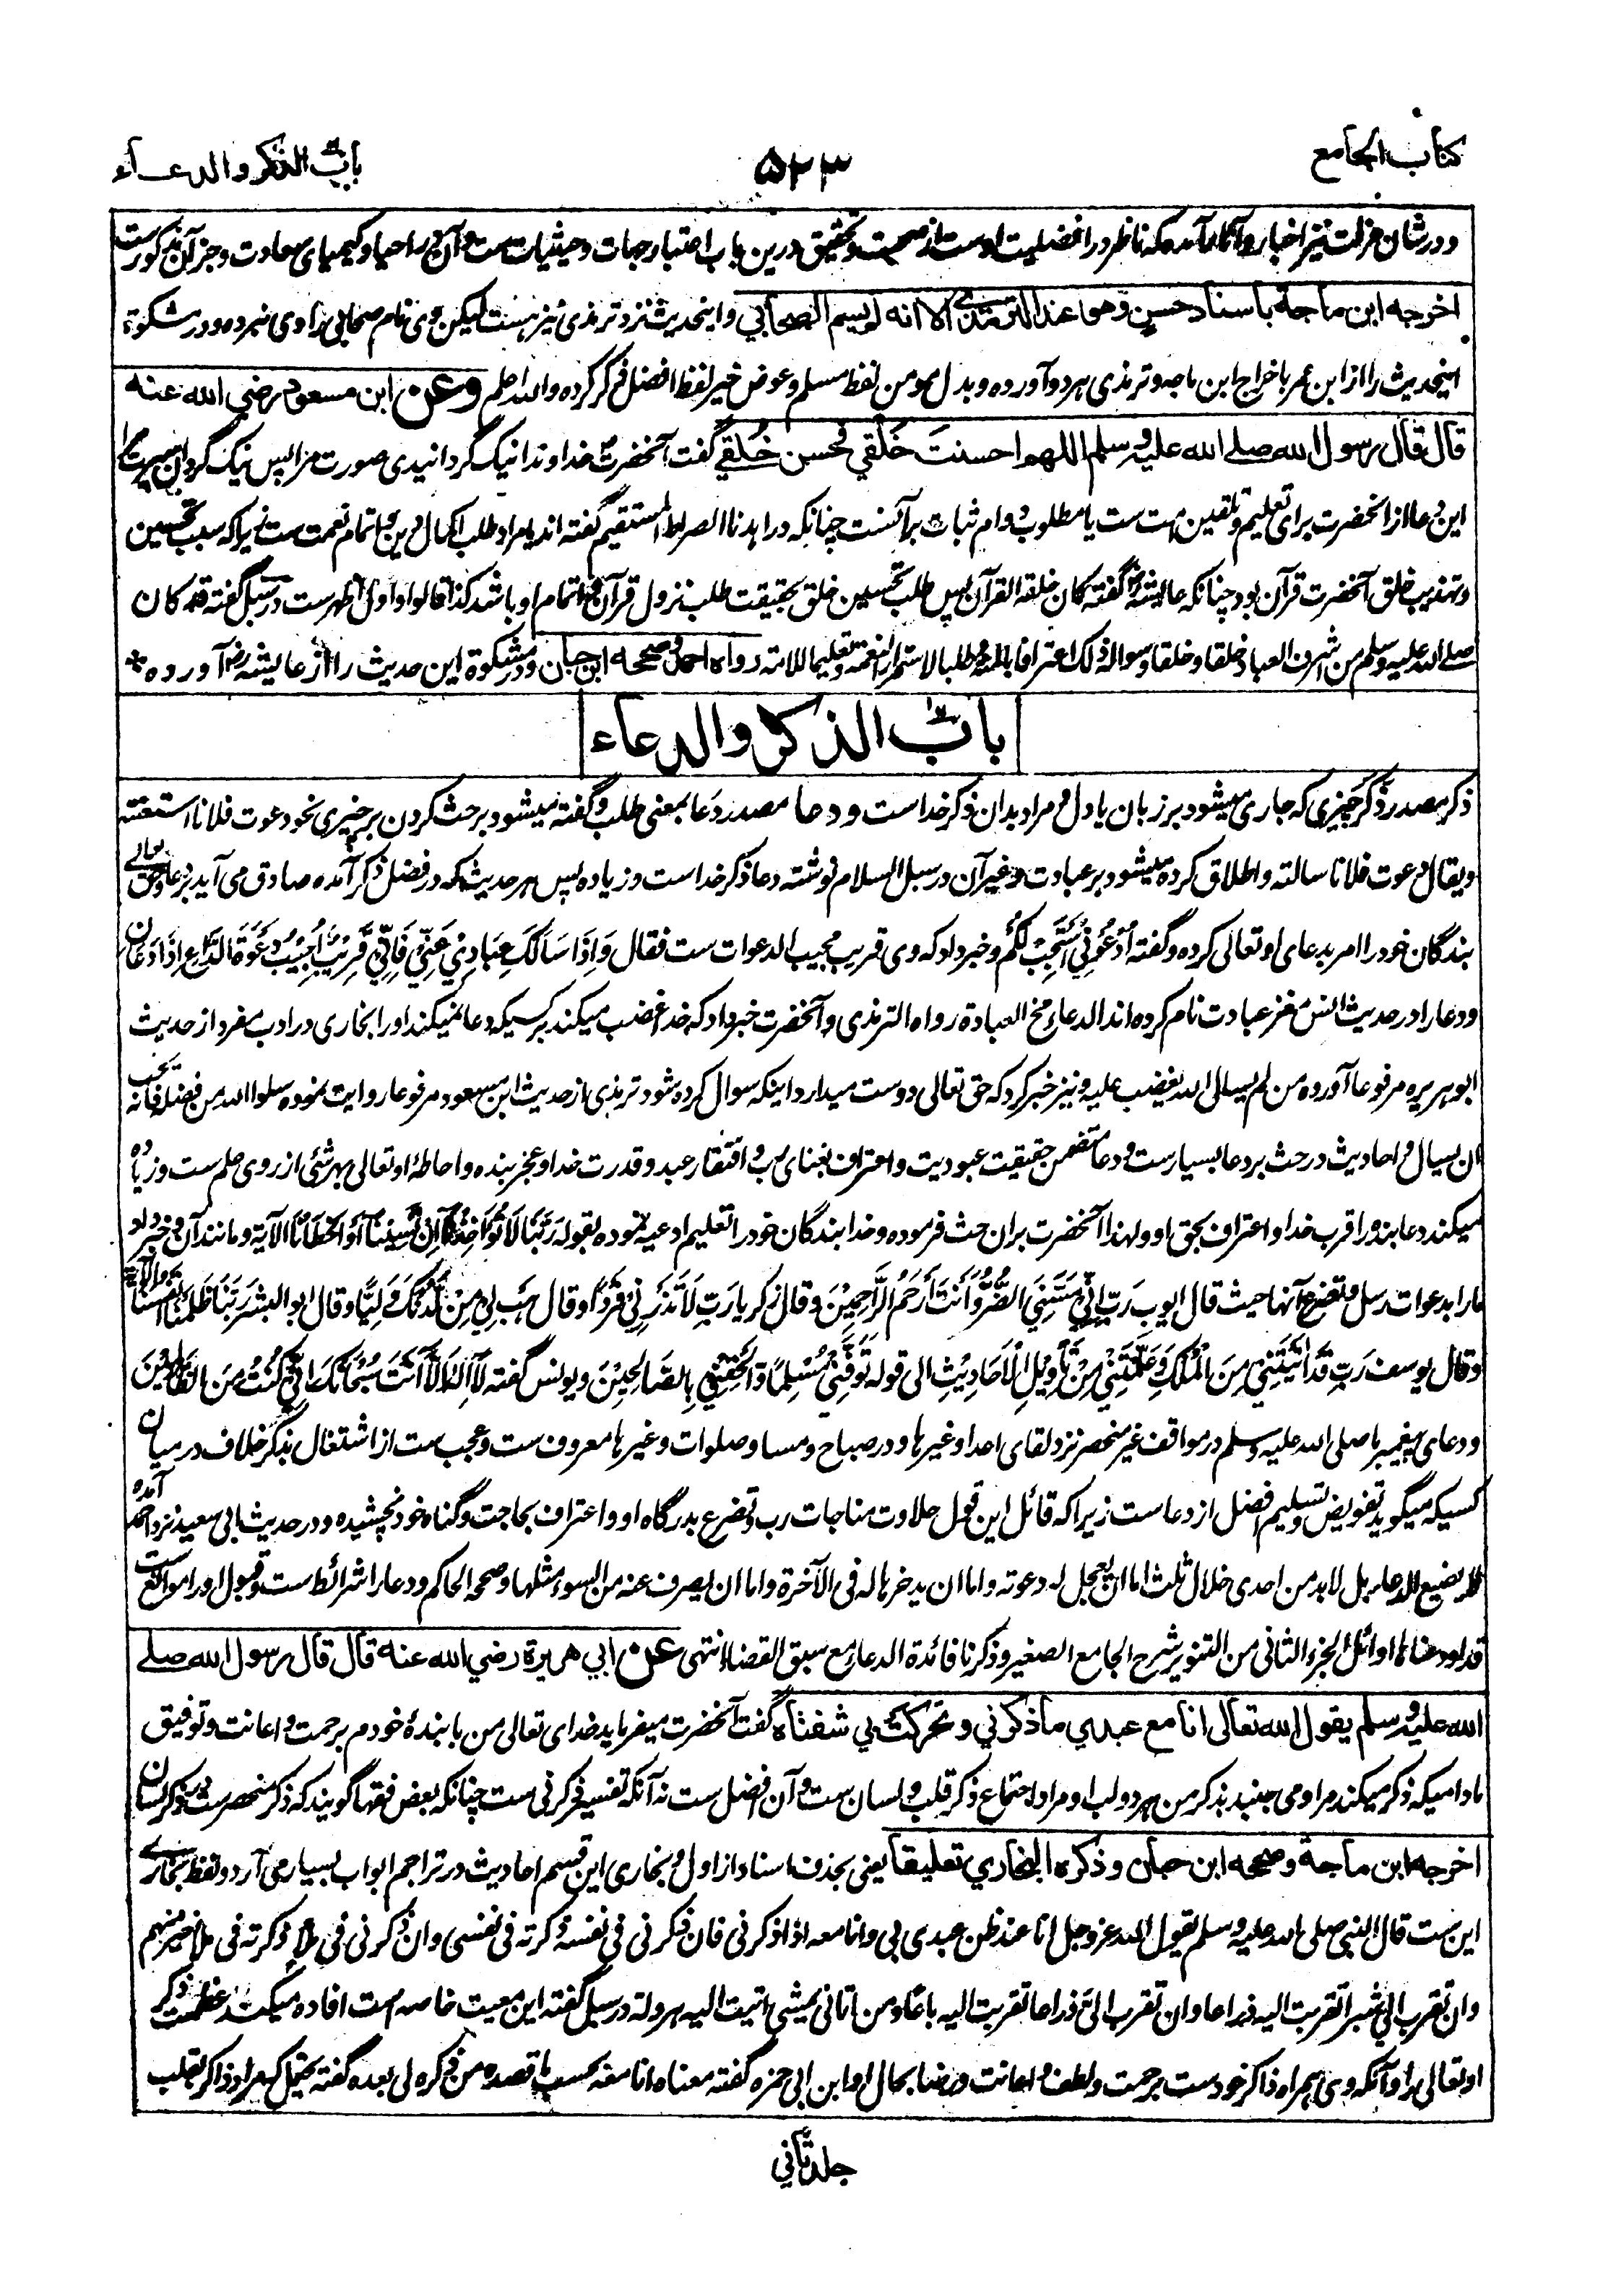 كتاب الجامع
۵۲۳
باب الذكر والدعاء
ودر شان عزلت نیز اخبار و آثار آمده که ناظر در افضلیت اوست از صحبت و تحقیق درین باب اعتبار جهات و حیثیات ست و آن در احیا و کیمیای سعادت و جز آن مذکورست
اخرجه ابن ماجة باسناد حسن وهو عند الترمذي الا انه لم يسم الصحابي و این حدیث نزد ترمذی نیز هست لیکن وی نام صحابی راوی نبرده و در مشکوة
این حدیث را از ابن عمر باخراج ابن ماجه و ترمذی هر دو آورده و بدل مومن لفظ مسلم و عوض خیر لفظ افضل ذکر کرده والله اعلم وعن ابن مسعود رضي الله عنه
قال قال رسول الله صلے الله علیه وسلم اللهم احسنت خَلْقي فحسن خُلُقي گفت آنحضرت خداوندا نیک گردانیدی صورت مرا پس نیک گردان سیرت مرا
این دعا از آنحضرت برای تعلیم و تلقین امت ست یا مطلوب دوام ثبات بر آنست چنانکه در اهدنا الصراط المستقیم گفته اند یا مراد طلب اکمال دین و اتمام نعمت ست زیرا که سبب تحسین
و تهذیب خلق آنحضرت قرآن بود چنانکه عائشه رض گفته کان خلقه القرآن پس طلب تحسین خلق بحقیقت طلب نزول قرآن و اتمام او باشد کذا قالوا و اول اظهرست در سبل گفته قد کان
صلے الله علیه وسلم من اشرف العباد خلقا و خلقا و سواله ذلک اعترافا بالمنة و طلبا لاستمرار النعمة و تعلیما للامة رواه احمد وصححه ابن حبان و در مشکوة این حدیث را از عایشه رض آورده *
باب الذكر والدعاء
ذکر مصدر ذَکَرَ چیزی که جاری میشود بر زبان یا دل و مراد بدان ذکر خداست و دعا مصدر دَعا بمعنی طلب و گفته میشود بر حث کردن بر چیزی نحو دعوت فلانا استعنته
و یقال دعوت فلانا سالته و اطلاق کرده میشود بر عبادت و غیر آن در سبل السلام نوشته دعا ذکر خداست و زیاده پس هر حدیث که در فضل ذکر آمده صادق می آید بر دعا و حق تعالے
بندگان خود را امر بدعای او تعالی کرده و گفته اُدْعُوْنِيْ اَسْتَجِبْ لَكُمْ و خبر داد که وی قریب مجیب الدعوات ست فقال وَاِذَا سَاَلَكَ عِبَادِيْ عَنِّيْ فَاِنِّيْ قَرِيْبٌ اُجِيْبُ دَعْوَةَ الدَّاعِ اِذَا دَعَانِ
و دعا را در حدیث انس مغز عبادت نام کرده اند الدعاء مخ العبادة رواه الترمذی و آنحضرت خبر داد که خدا غضب میکند بر کسیکه دعا نمیکند او را بخاری در ادب مفرد از حدیث
ابو هریره مرفوعا آورده من لم یسال الله یغضب علیه و نیز خبر کرد که حق تعالی دوست میدارد اینکه سوال کرده شود ترمذی از حدیث ابن مسعود مرفوعا روایت نموده سلوا الله من فضله فانه یحب
ان یسال و احادیث در حث بر دعا بسیارست و دعا متضمن حقیقت عبودیت و اعتراف بغنای رب و افتقار عبد و قدرت خدا و عجز بنده و احاطهٔ او تعالی بهر شئی از روی علم ست و زیاده
میکند دعا بنده را قرب خدا و اعتراف بحق او و لهذا آنحضرت بران حث فرموده و خدا بندگان خود را تعلیم ادعیه نموده بقوله رَبَّنَا لَا تُؤَاخِذْنَا اِنْ نَّسِيْنَا اَوْ اَخْطَاْنَا الآیة و مانند آن و خبر داد
ما را بدعوات رسل و تضرع آنها حیث قال ایوب رَبِّ اِنِّيْ مَسَّنِيَ الضُّرُّ وَاَنْتَ اَرْحَمُ الرَّاحِمِيْنَ و قال زکریا رَبِّ لَا تَذَرْنِيْ فَرْدًا و قال هَبْ لِيْ مِنْ لَّدُنْكَ وَلِيًّا و قال ابو البشر رَبَّنَا ظَلَمْنَا اَنْفُسَنَا الآیة
و قال یوسف رَبِّ قَدْ اٰتَيْتَنِيْ مِنَ الْمُلْكِ وَعَلَّمْتَنِيْ مِنْ تَاْوِيْلِ الْاَحَادِيْثِ الی قوله تَوَفَّنِيْ مُسْلِمًا وَّاَلْحِقْنِيْ بِالصَّالِحِيْنَ و یونس گفته لَا اِلٰهَ اِلَّا اَنْتَ سُبْحَانَكَ اِنِّيْ كُنْتُ مِنَ الظَّالِمِيْنَ
و دعای پیغمبر ما صلی الله علیه وسلم در مواقف غیر منحصر نزد لقای اعدا و غیرها و در صباح و مسا و صلوات و غیرها معروف ست و عجب ست از اشتغال بذکر خلاف در میان
کسیکه میگوید تفویض و تسلیم افضل از دعاست زیرا که قائل این قول حلاوت مناجات رب و تضرع بدرگاه او و اعتراف بحاجت و گناه خود نچشیده و در حدیث ابی سعید نزد احمد آمده
لا یضیع الدعاء بل لابد من احدی خلال ثلث اما ان یعجل له دعوته و اما ان یدخرها له فی الآخرة و اما ان یصرف عنه من السوء مثلها وصححه الحاکم و دعا را شرائط ست و قبول او را موانع ست
قد اودعناها اوائل الجزء الثانی من التنویر شرح الجامع الصغیر و ذکرنا فائدة الدعاء مع سبق القضاء انتهی عن ابي هريرة رضي الله عنه قال قال رسول الله صلے
الله علیه وسلم يقول الله تعالى انا مع عبدي ما ذكرني وتحركت بي شفتاه گفت آنحضرت میفرماید خدای تعالی من با بندهٔ خودم برحمت و اعانت و توفیق
مادامیکه ذکر میکند مرا و می جنبد بذکر من هر دو لب او مراد اجتماع ذکر قلب و لسان ست و آن افضل ست نه آنکه تفسیر ذکرنی ست چنانکه بعض فقها گویند که ذکر منحصر ست بذکر لسان
اخرجه ابن ماجة وصححه ابن حبان وذكره البخاري تعليقا یعنی بحذف اسناد از اول و بخاری این قسم احادیث در تراجم ابواب بسیار می آرد و لفظ بخارے
این ست قال النبی صلی الله علیه وسلم یقول الله عز وجل انا عند ظن عبدی بی و انا معه اذا ذکرنی فان ذکرنی فی نفسه ذکرته فی نفسی و ان ذکرنی فی ملاء ذکرته فی ملاء خیر منهم
و ان تقرب الی شبرا تقربت الیه ذراعا و ان تقرب الیّ ذراعا تقربت الیه باعا و من اتانی یمشی اتیت الیه هرولة در سبل گفته این معیت خاصه است افاده میکند عظمت ذکر
او تعالی را و آنکه وی همراه ذاکر خودست برحمت و لطف و اعانت و رضا بحال او ابن ابی حمزه گفته معناه انا معه بحسب ما قصده من ذکره لی بعده گفته یحتمل که مراد ذاکر بقلب
جلد ثاني